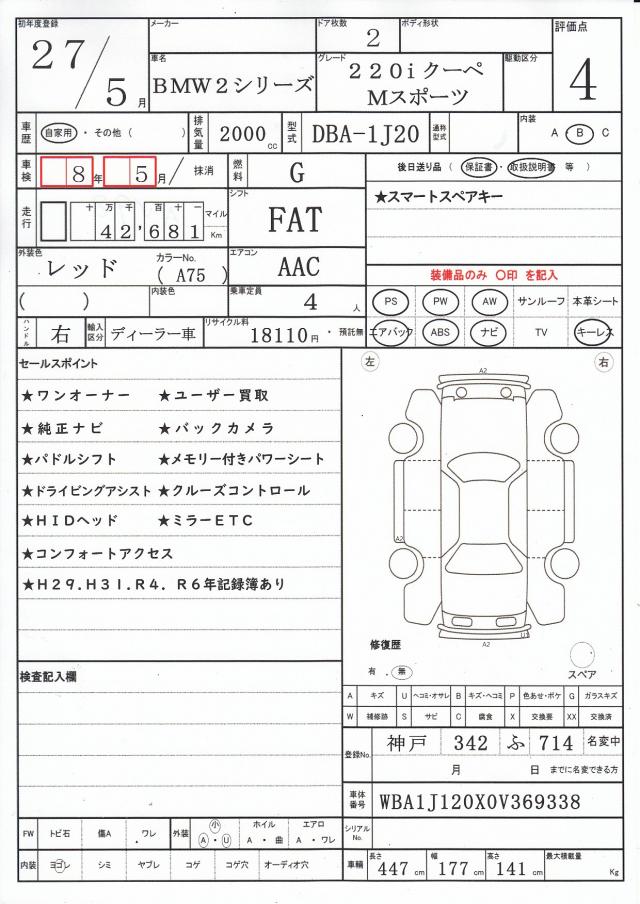 初年度登録 27/5月
メーカー
ドア枚数 2
ボディ形状
評価点 4
車名 BMW2シリーズ
グレード 220iクーペ
Mスポーツ
駆動区分
車歴 自家用・その他( )
排気量 2000cc
型式 DBA-1J20
通称型式
内装 A・B C
車検 8年5月/ 抹消
燃料 G
後日送り品 (保証書・取扱説明書 等 )
走行 十万千百十一 42,681 マイル Km
シフト FAT
★スマートスペアキー
外装色 レッド カラーNo. ( A75 )
エアコン AAC
装備品のみ 〇印 を記入
( )
内装色
乗車定員 4人
PS PW AW サンルーフ 本革シート
ハンドル 右
輸入区分 ディーラー車
リサイクル料 18110円・預託無
エアバック ABS ナビ TV キーレス
セールスポイント
左 右
A2
★ワンオーナー ★ユーザー買取
★純正ナビ ★バックカメラ
★パドルシフト ★メモリー付きパワーシート
★ドライビングアシスト ★クルーズコントロール
★HIDヘッド ★ミラーETC
★コンフォートアクセス
★H29.H31.R4. R6年記録簿あり
A2
U1
A2
修復歴
有 . 無
スペア
検査記入欄
A キズ U ヘコミ・オサレ B キズ・ヘコミ P 色あせ・ボケ G ガラスキズ
W 補修跡 S サビ C 腐食 X 交換要 XX 交換済
登録No. 神戸 342 ふ 714 名変中
月 日 までに名変できる方
車体番号 WBA1J120X0V369338
シリアルNo.
FW トビ石 傷A ワレ 外装 小 A・U ホイル A・曲 エアロ A・ワレ
内装 ヨゴレ シミ ヤブレ コゲ コゲ穴 オーディオ穴
車輌 長さ 447cm 幅 177cm 高さ 141cm 最大積載量 Kg